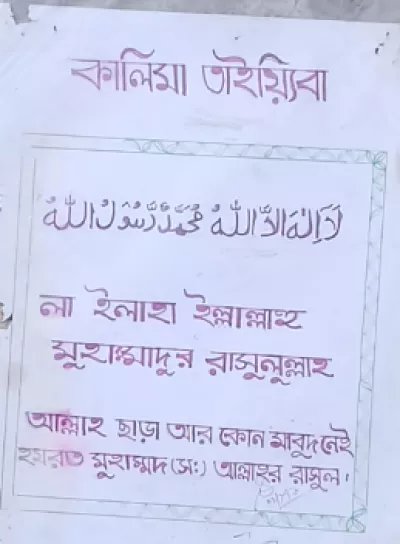 কালিমা তাইয়্যিবা
لَا إِلٰهَ إِلَّا اللّٰهُ مُحَمَّدٌ رَسُولُ اللّٰهِ
লা ইলাহা ইল্লাল্লাহু
মুহাম্মাদুর রাসুলুল্লাহ
আল্লাহ ছাড়া আর কোন মাবুদ নেই
হযরত মুহাম্মাদ (স:) আল্লাহর রাসুল।